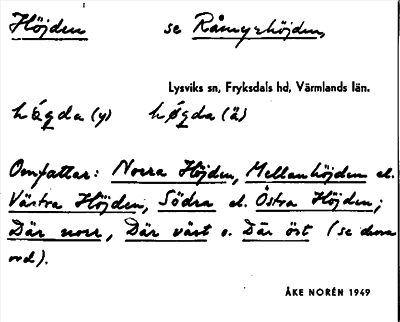 Höjden se Råmyrhöjden,
Lysviks sn, Fryksdals hd, Värmlands län.
hǿgda (y) hǿgda (ä)
Omfattar: Norra Höjden, Mellanhöjden el.
Västra Höjden, Södra el. Östra Höjden;
Där norr, Där väst o. Där öst (se dessa
ord).
ÅKE NORÉN 1949